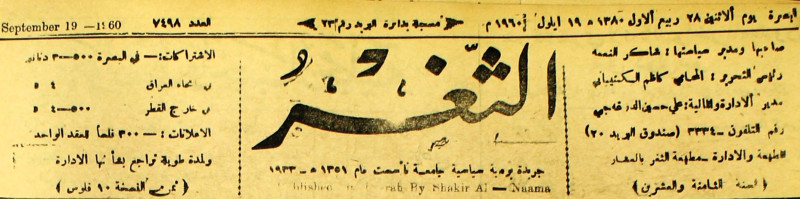 البصرة يوم الأثنين ٢٨ ربيع الاول ١٣٨٠ ه ١٩ ايلول ١٩٦٠ م
مسجلة بدائرة البريد رقم ٢٣
العدد ٧٤٩٨
September 19 — 1960
صاحبها ومدير سياستها : شاكر النعمه
رئيس التحرير : المحامي كاظم الكتيباني
مدير الادارة والمالية : علي حسين
رقم التلفون — ٣٣٣٤ (صندوق البريد ٢٠)
المطبعة والادارة — مطبعة الثغر بالعشار
(السنة الثامنة والعشرين)
الثغر
جريدة يومية سياسية جامعة تأسست عام ١٣٥١ ه — ١٩٣٣
Published in Basrah By Shakir Al — Naama
الاشتراكات : — في البصرة ٥٠٠ — ٣ دنانير
في انحاء العراق ٤ »
في خارج القطر ٥٠٠ — ٤ »
الاعلانات : — ٣٠٠ فلساً للعقد الواحد
ولمدة طويلة تراجع بشأنها الادارة
(ثمن النسخة ١٠ فلوس)